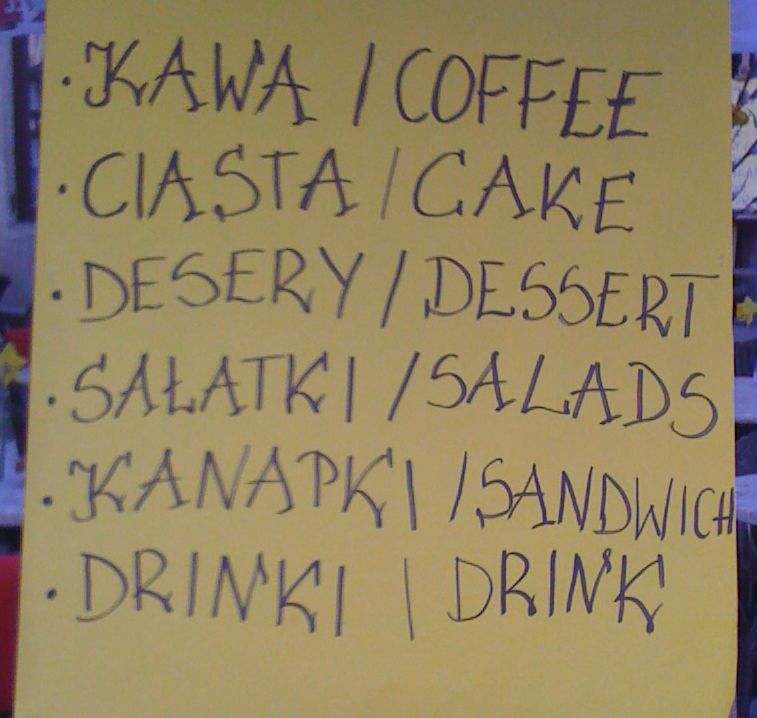 · KAWA / COFFEE
· CIASTA / CAKE
· DESERY / DESSERT
· SAŁATKI / SALADS
· KANAPKI / SANDWICH
· DRINKI | DRINK